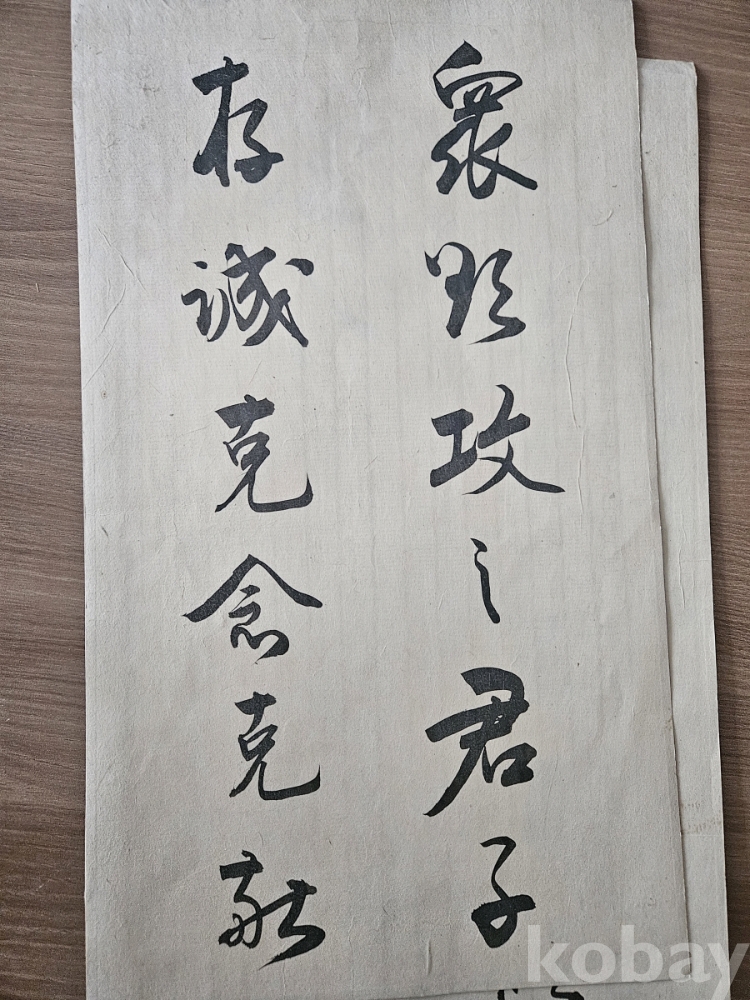 衆欲攻之君子
存誠克念克敬
kobay